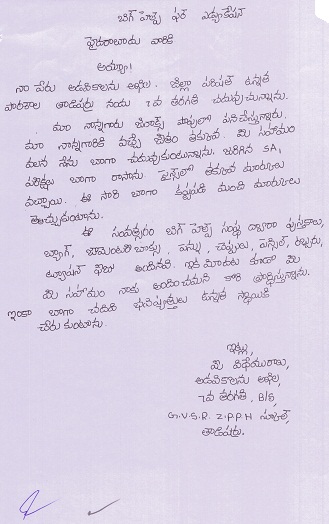 బిగ్ హెల్ప్ ఫర్ ఎడ్యుకేషన్
హైదరాబాదు వారికి
అయ్యా!
నా పేరు అడవికాలను అఖిల. జిల్లా పరిషత్ ఉన్నత
పాఠశాల తాడిపర్రు నందు 7వ తరగతి చదువుచున్నాను.
మా నాన్నగారు షాపులో పనిచేస్తున్నారు.
మా నాన్నగారికి వచ్చే జీతం తక్కువ. మీ సహాయం
వలన నేను బాగా చదువుకుంటున్నాను. జరిగిన SA1
పరీక్షలు బాగా రాసాను. తక్కువ మార్కులు
వచ్చాయి. ఈ సారి బాగా కష్టపడి మంచి మార్కులు
తెచ్చుకుంటాను.
ఈ సంవత్సరం బిగ్ హెల్ప్ సంస్థ ద్వారా పుస్తకాలు,
బ్యాగ్, బాక్సు, పెన్ను, చెప్పులు, పెన్సిల్, రబ్బరు,
ట్యూషన్ ఫీజు అందినవి. ఇక మీదట కూడా మీ
మీ సహాయం నాకు అందించమని కోరి ప్రార్థిస్తున్నాను.
ఇంకా బాగా చదివి భవిష్యత్తులో ఉన్నత స్థాయికి
చేరుకుంటాను.
ఇట్లు,
మీ విధేయురాలు,
అడవికాలను అఖిల,
7వ తరగతి, B/S,
G.V.S.R. Z.P.P.H స్కూల్,
తాడిపర్రు.